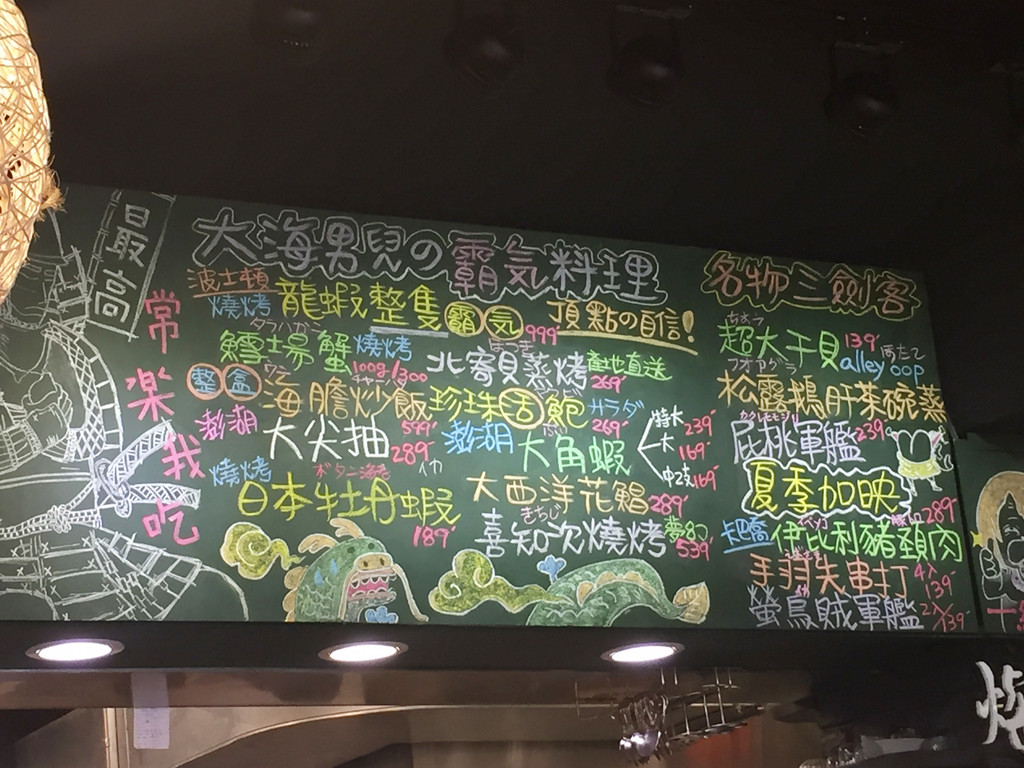 最高
常楽我吃
大海男兒の霸気料理
波士頓
燒烤 龍蝦整隻 霸気 999 頂點の自信!
タラバガニ
鱈場蟹 燒烤 100g/300
北寄貝蒸烤 產地直送 269
整盒 海膽炒飯 599
珍珠活鮑 サラダ 269
澎湖 大尖抽 289
澎湖 大角蝦 特大 239 大 169 中 169
燒烤 ボタン海老
日本牡丹蝦 189
大西洋花鯧 289
きちじ
喜知次燒烤 539
名物三劍客
超大干貝 139 alley oop
フオアグラ
松露鵝肝茶碗蒸
屁桃軍艦 239
夏季加映
伊比利豬頸肉 289
串打 139
螢烏賊軍艦 2入/139